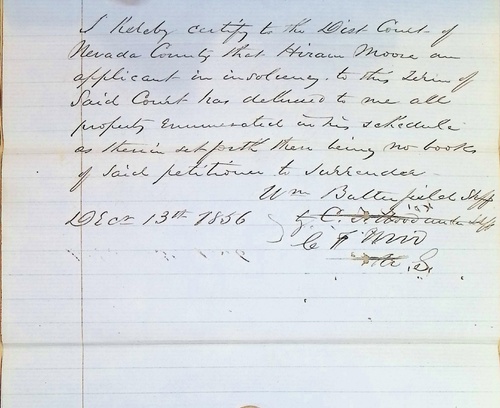 I hereby certify to the Dist Court of
Nevada County that Hiram Moore an
applicant in insolvency to this Term of
Said Court has delivered to me all
property Enumerated in his schedule
as therein set forth there being no books
of said petitioner to surrender
Wm Butterfield Shff
Decr 13th 1856
by C. F. Wood under Shff
C F Wood
S.